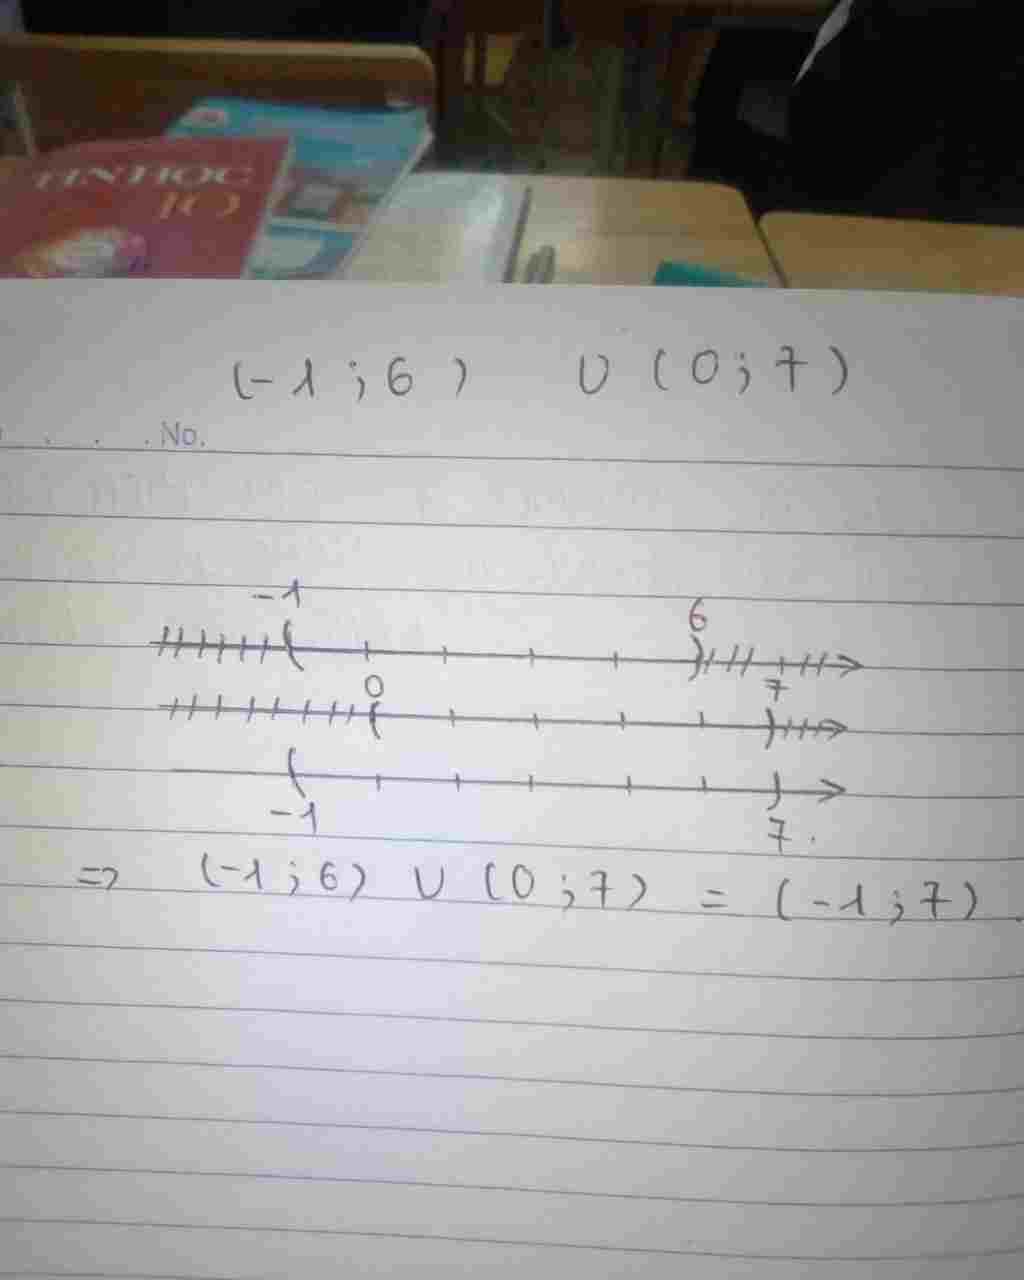 TIN HỌC
10
(-1 ; 6) ∪ (0 ; 7)
No.
-1 6
0 7
-1 7
=> (-1 ; 6) ∪ (0 ; 7) = (-1 ; 7).